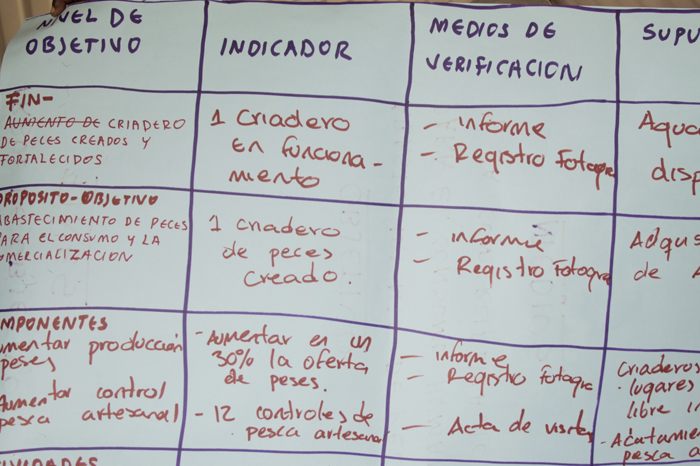 NIVEL DE
OBJETIVO
INDICADOR
MEDIOS DE
VERIFICACION
SUPU
FIN-
AUMENTO DE CRIADERO
DE PECES CREADOS Y
FORTALECIDOS
1 criadero
en funciona-
miento
- informe
- Registro Fotogra
Aqua
disp
PROPOSITO-OBJETIVO
ABASTECIMIENTO DE PECES
PARA EL CONSUMO Y LA
OMERCIALIZACION
1 criadero
de peces
creado.
- informe
- Registro Fotogra
Adqus
de
MPONENTES
mentar producción
peses
Aumentar control
pesca artesanal
- Aumentar en un
30% la oferta
de peses.
- 12 controles de
pesca artesanal
- informe
- Registro Fotogra
- Acta de visita
Criaderos
lugares
libre in
- Acatamie
pesca a
VIDADES